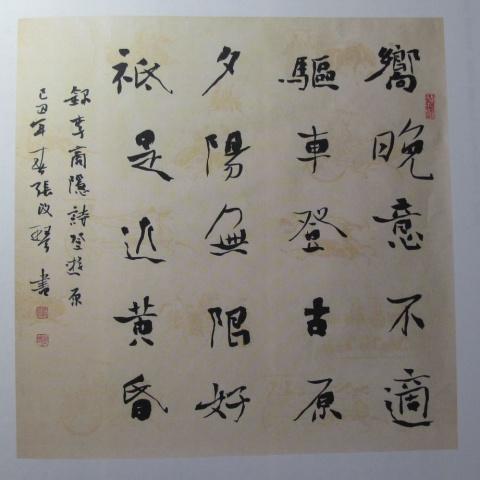 嚮晚意不適
驅車登古原
夕陽無限好
祗是近黄昏
錄李商隱詩登遊原
己丑年 張改琴書